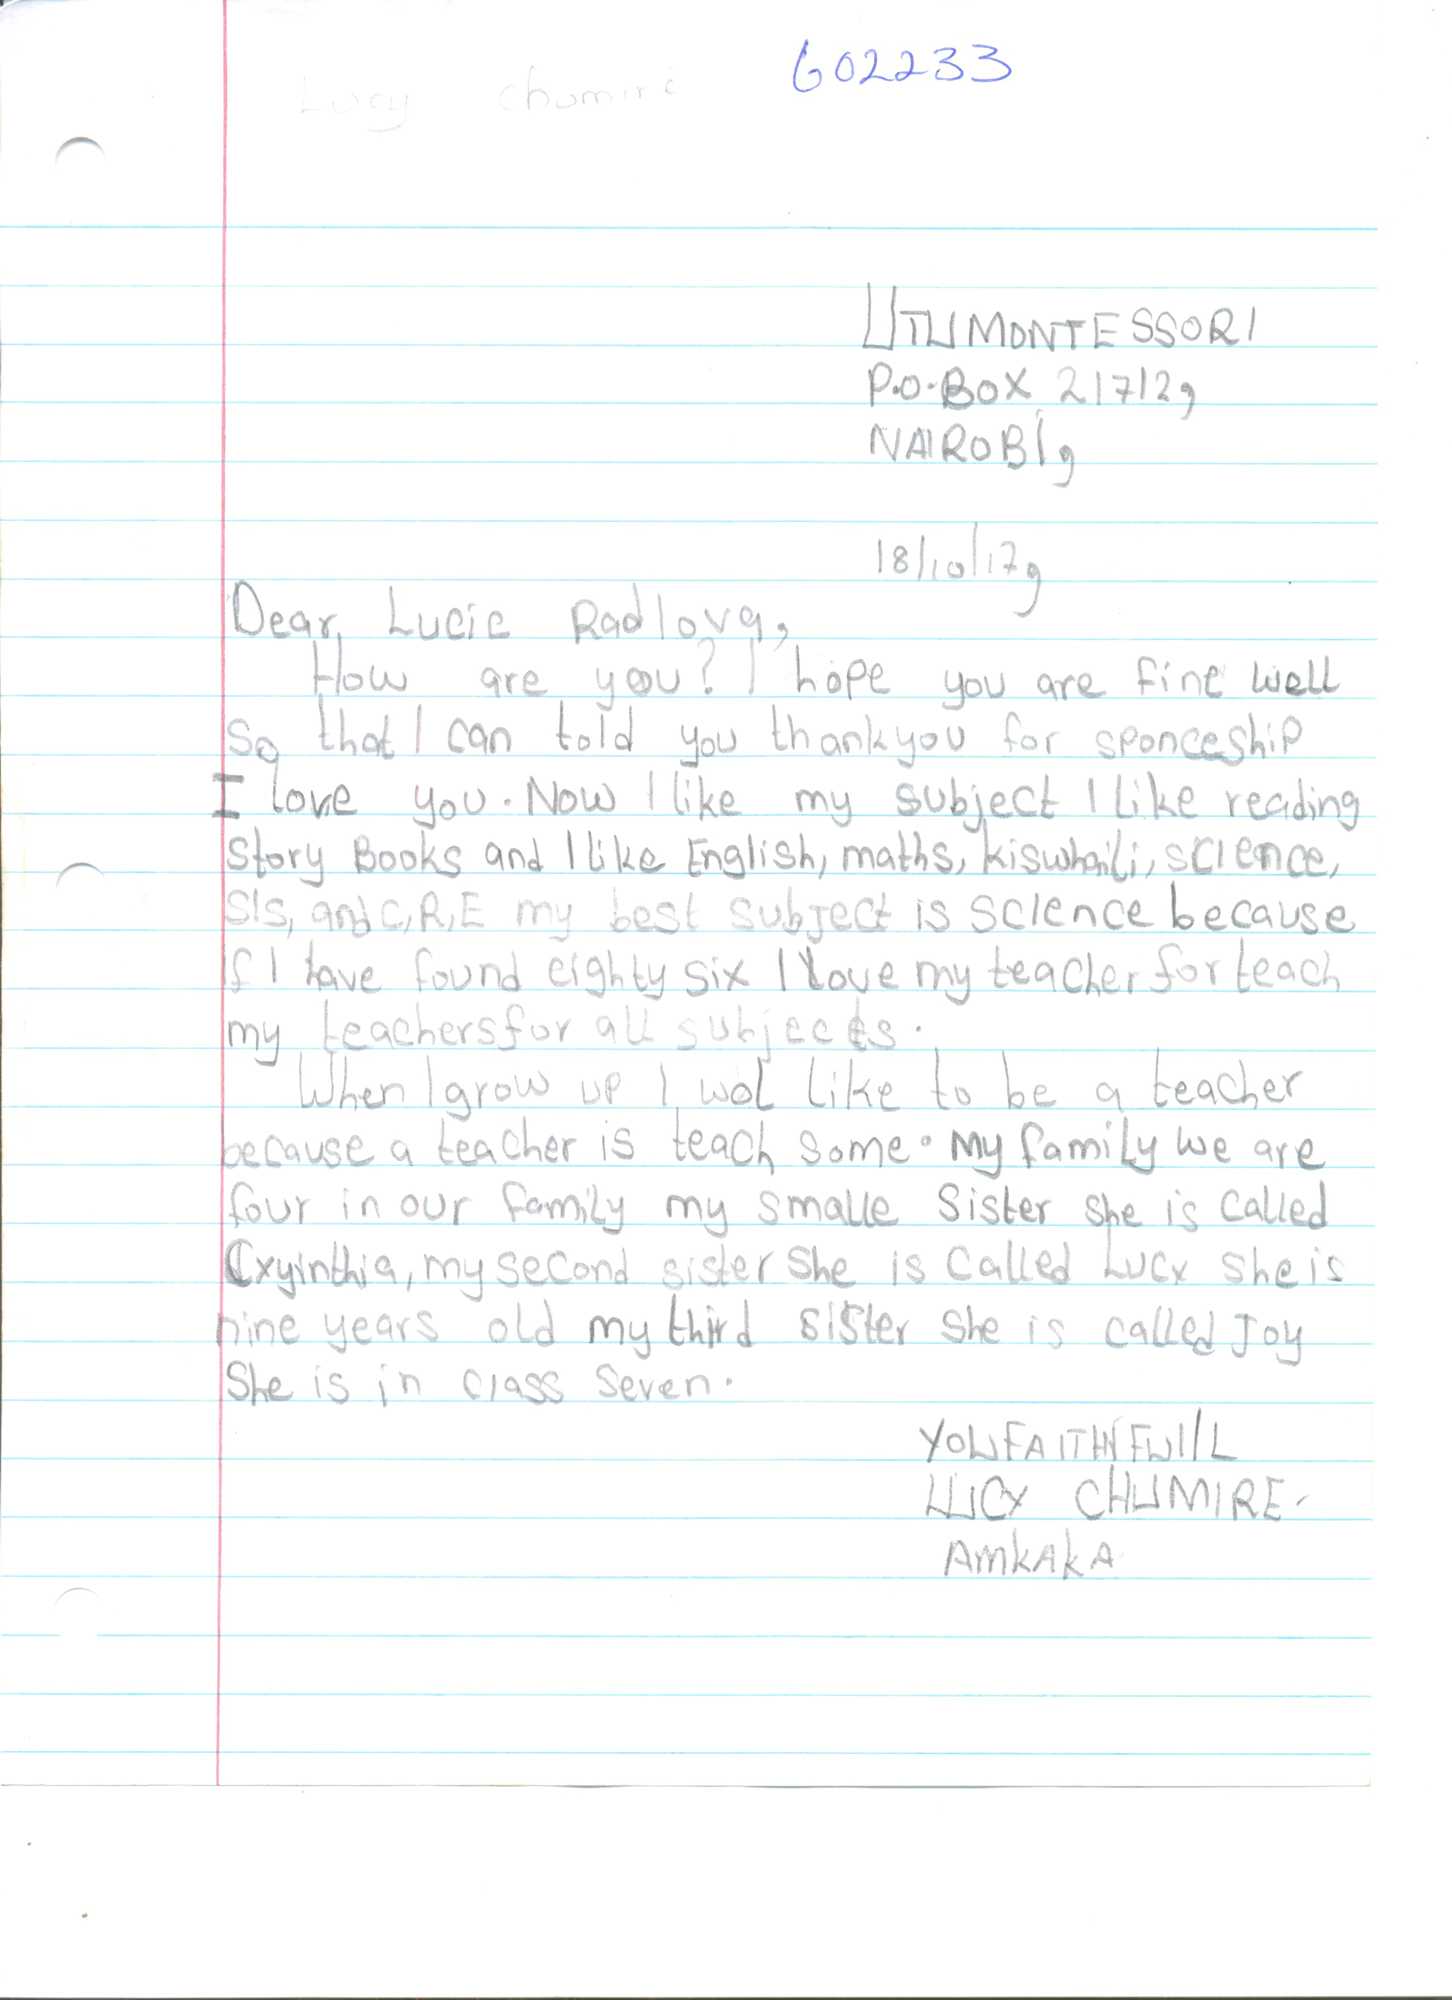 Lucy Chumire 602233
UTUMONTESSORI
P.O.BOX 21712,
NAIROBI,
18/10/17,
Dear, Lucie Radlova,
How are you? I hope you are fine well
So that I can told you thankyou for sponceship
I love you. Now I like my subject I like reading
story Books and I like English, maths, kiswhaili, science,
S/S, and C,R,E my best subject is science because
if I have found eighty six I love my teacher for teach
my teachers for all subjects.
When I grow up I wol like to be a teacher
because a teacher is teach some. My family we are
four in our family my smalle sister she is called
Cxyinthia, my second sister she is called Lucy she is
nine years old my third sister she is called Joy
She is in class seven.
YOUFAITHFULL
LUCY CHUMIRE.
AMKAKA